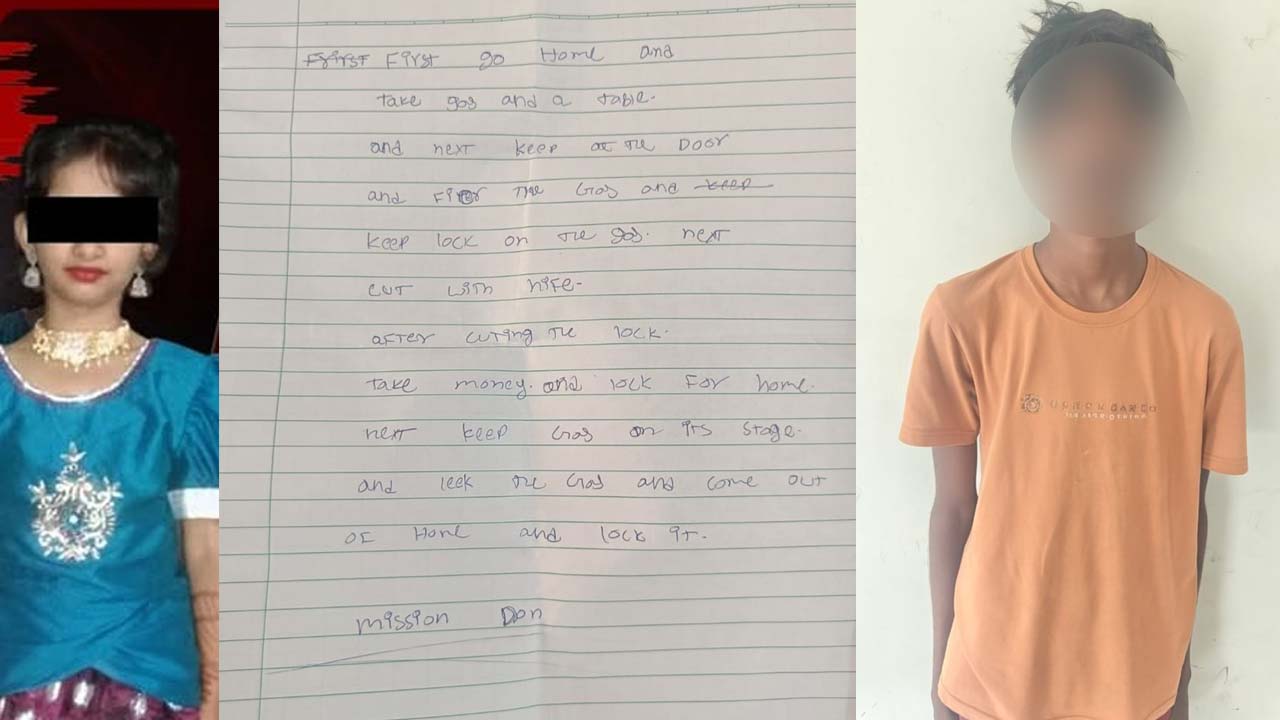 First First go Home and
take gas and a table.
and next keep at the Door
and Fier The Gas and keep
keep lock on the gas. next
cut with nife.
after cuting the lock.
take money. and lock for home.
next keep Gas on its stage.
and leek the Gas and come out
of Home and lock it.
mission Don